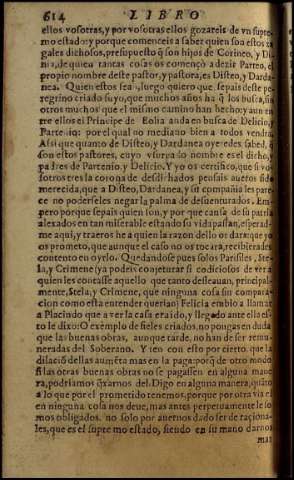 614 LIBRO
ellos vosotras, y por vosotras ellos gozareis de vn supre
mo estado: y porque comenceis a saber quien son estos za
gales dichosos, presupuesto q̃ son hijos de Corineo, y Di
nia, de quien tantas cosas os començò a dezir Parteo, el
propio nombre deste pastor, y pastora, es Disteo, y Darda
nea. Quien estos sean, luego quiero que sepais deste pe
regrino criado suyo, que muchos años ha q̃ los busca, sin
otros muchos que el mismo camino han hecho: y aun en
tre ellos el Principe de Eolia anda en busca de Delicio, y
Partenio: por el qual no mediano bien a todos vendrà.
Assi que quanto de Disteo, y Dardanea oyeredes, sabed, q̃
son estos pastores, cuyo nombre es el dicho, y
padres de Partenio, y Delicio. Y yo os certifico, que si vo
sotros en la corona de desdichados pensais aueros sido
merecida, que a Disteo, Dardanea, y su compañia les pare
ce no poderseles negar la palma de desuenturados. Em
pero porque sepais quien son, y por que causa de su patria
alexados en tan miserable estando su vida passan, esperad
me aqui, y traeros he a quien la razon dello os darà: que yo
os prometo, que aunque el caso no os tocara, recibierades
contento en oyrlo. Quedandose pues solos Parisiles, Ste-
la, y Crimene (ya podeis conjeturar si codiciosos de ver a
quien les contasse aquello que tanto desseauan, principal-
mente, Stela, y Crimene, que ninguna cosa sin compara-
cion como esta entender querian) Felicia embio a llamar
a Placindo que a ver la casa era ido, y llegado ante ella es-
to le dixo: O exemplo de fieles criados, no pongas en duda
que las buenas obras, aunque tarde, no han de ser remu-
neradas del Soberano. Y ten con esto por cierto, que la
dilaciõ dellas aumẽta mas en la paga: porq̃ de otro modo
si las otras buenas obras no se pagassen en alguna mane
ra, podriamos q̃xarnos del. Digo en alguna manera, quãto
a lo que por el prometido tenemos, porque por otra via el
en ninguna cosa nos deue, mas antes perpetuamente le so
mos obligados, no solo por auernos dado ser de raciona-
les, que es el supremo estado, siendo en su mano darnos
mas